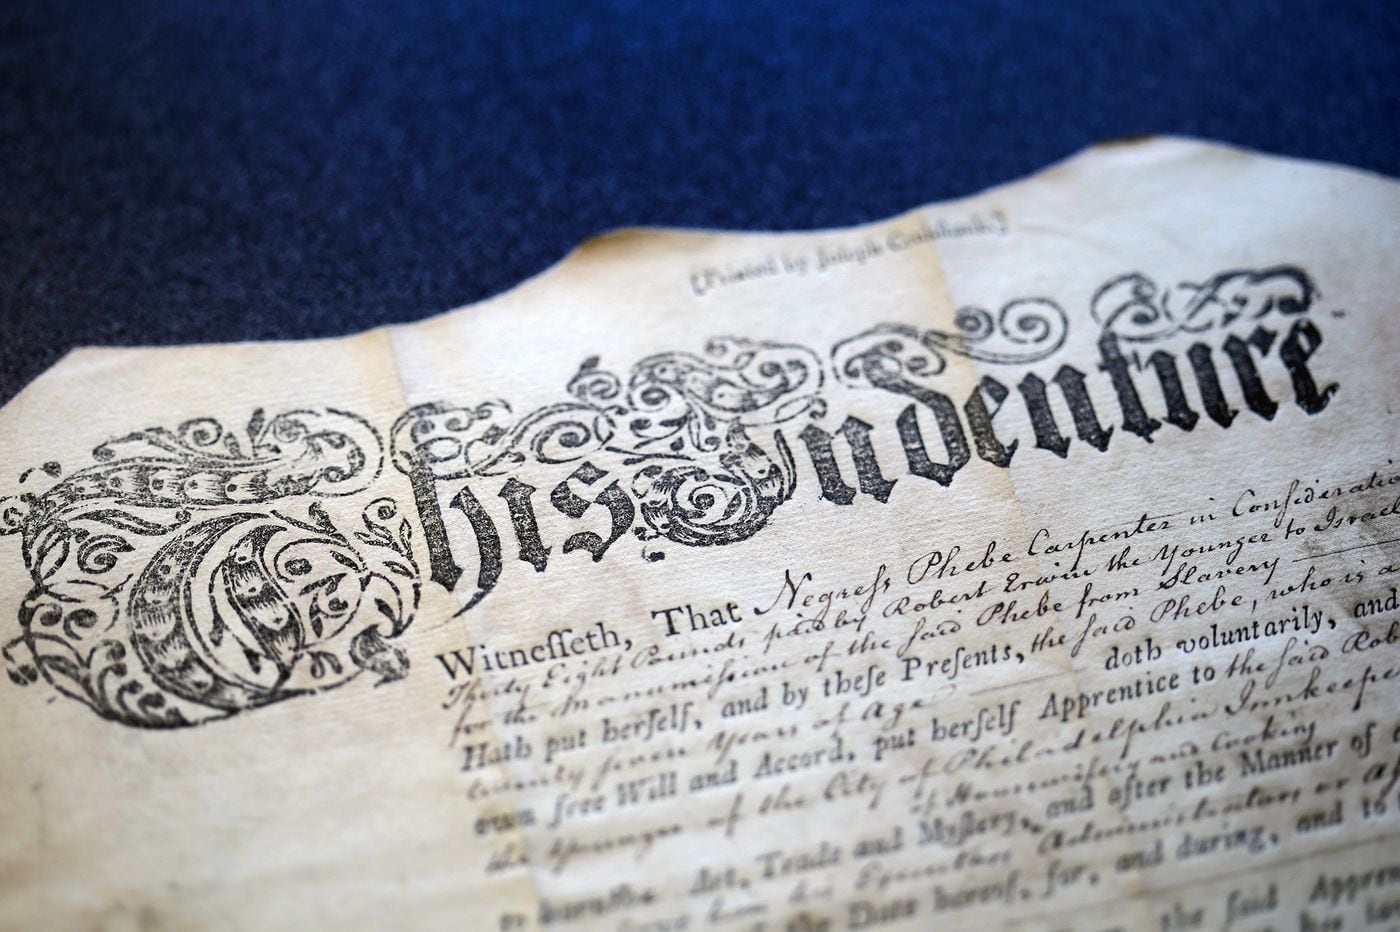 [Printed by Joseph Crukshank.]
This Indenture
Witneſſeth, That Negreſs Phebe Carpenter in Consideratio
Thirty Eight Pounds paid by Robert Erwin the Younger to Israel
for the manumiſsion of the ſaid Phebe from Slavery
Hath put herſelf, and by theſe Preſents, the ſaid Phebe, who is a
twenty ſeven Years of Age doth voluntarily, and
own free Will and Accord, put herſelf Apprentice to the ſaid Rob
the Younger of the City of Philadelphia Innkeepe
of Houswifery and Cooking
Art, Trade and Myſtery, and after the Manner of
his Executors Administrators or Aſ
the Date hereof, for, and during, and to
the ſaid Appren